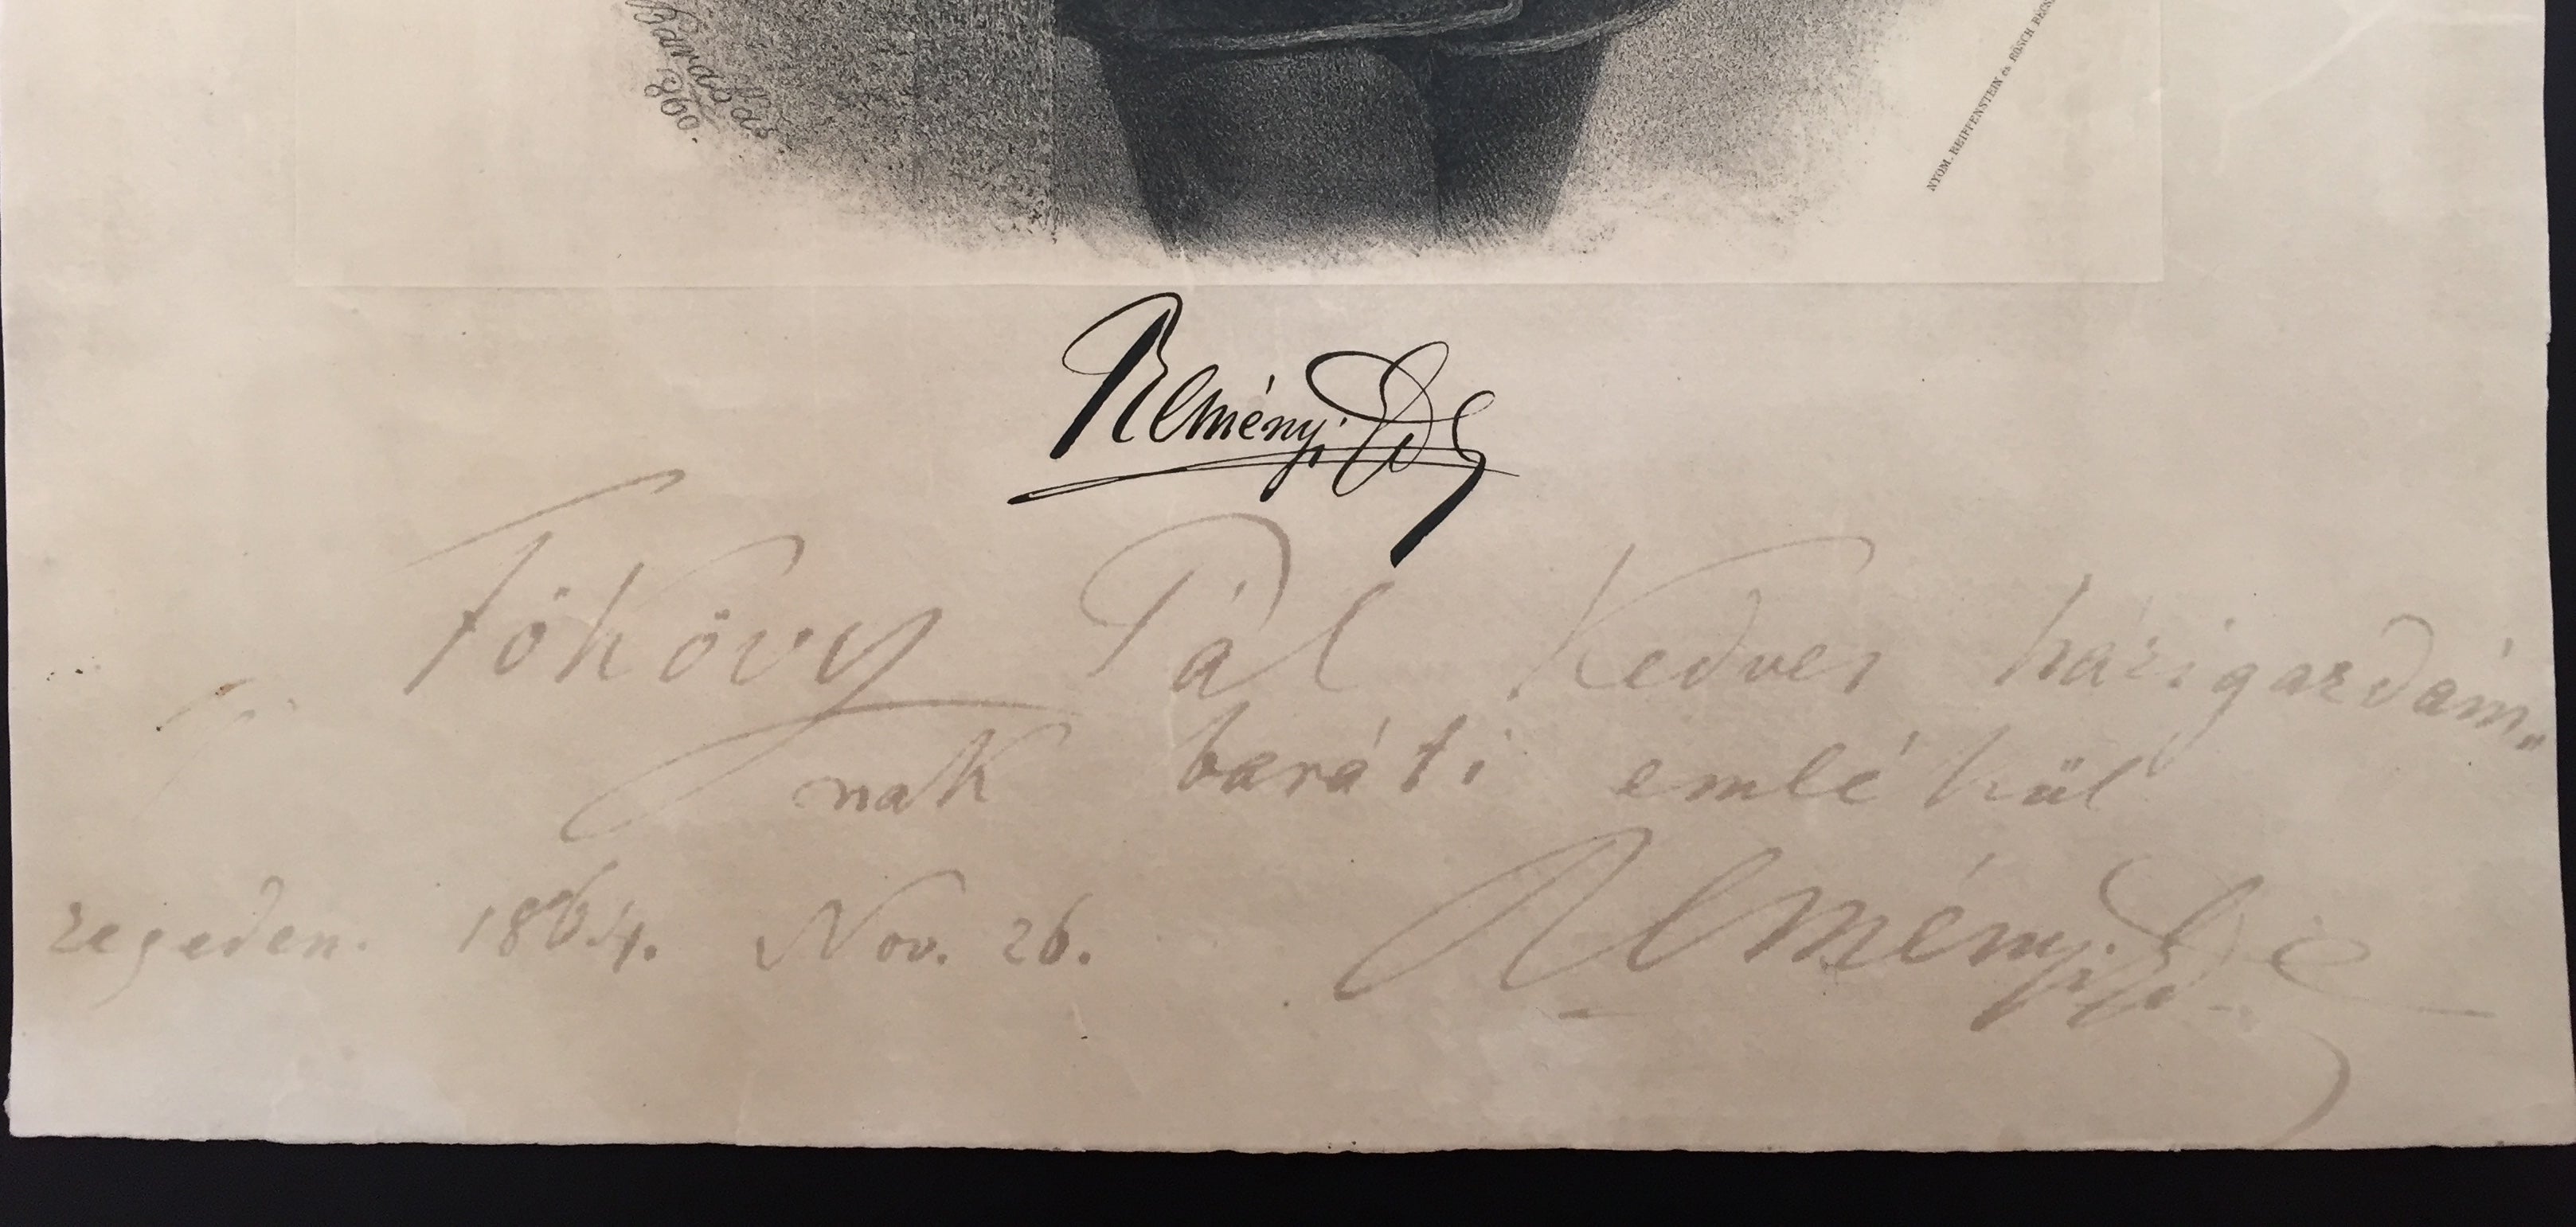 Marastoni
1860.
NYOM. REIFFENSTEIN és RÖSCH BÉCS
Reményi Ede
Fökövy Pál Kedves házigazdám„
nak baráti emlékül
zegeden. 1864. Nov. 26. Reményi Ede